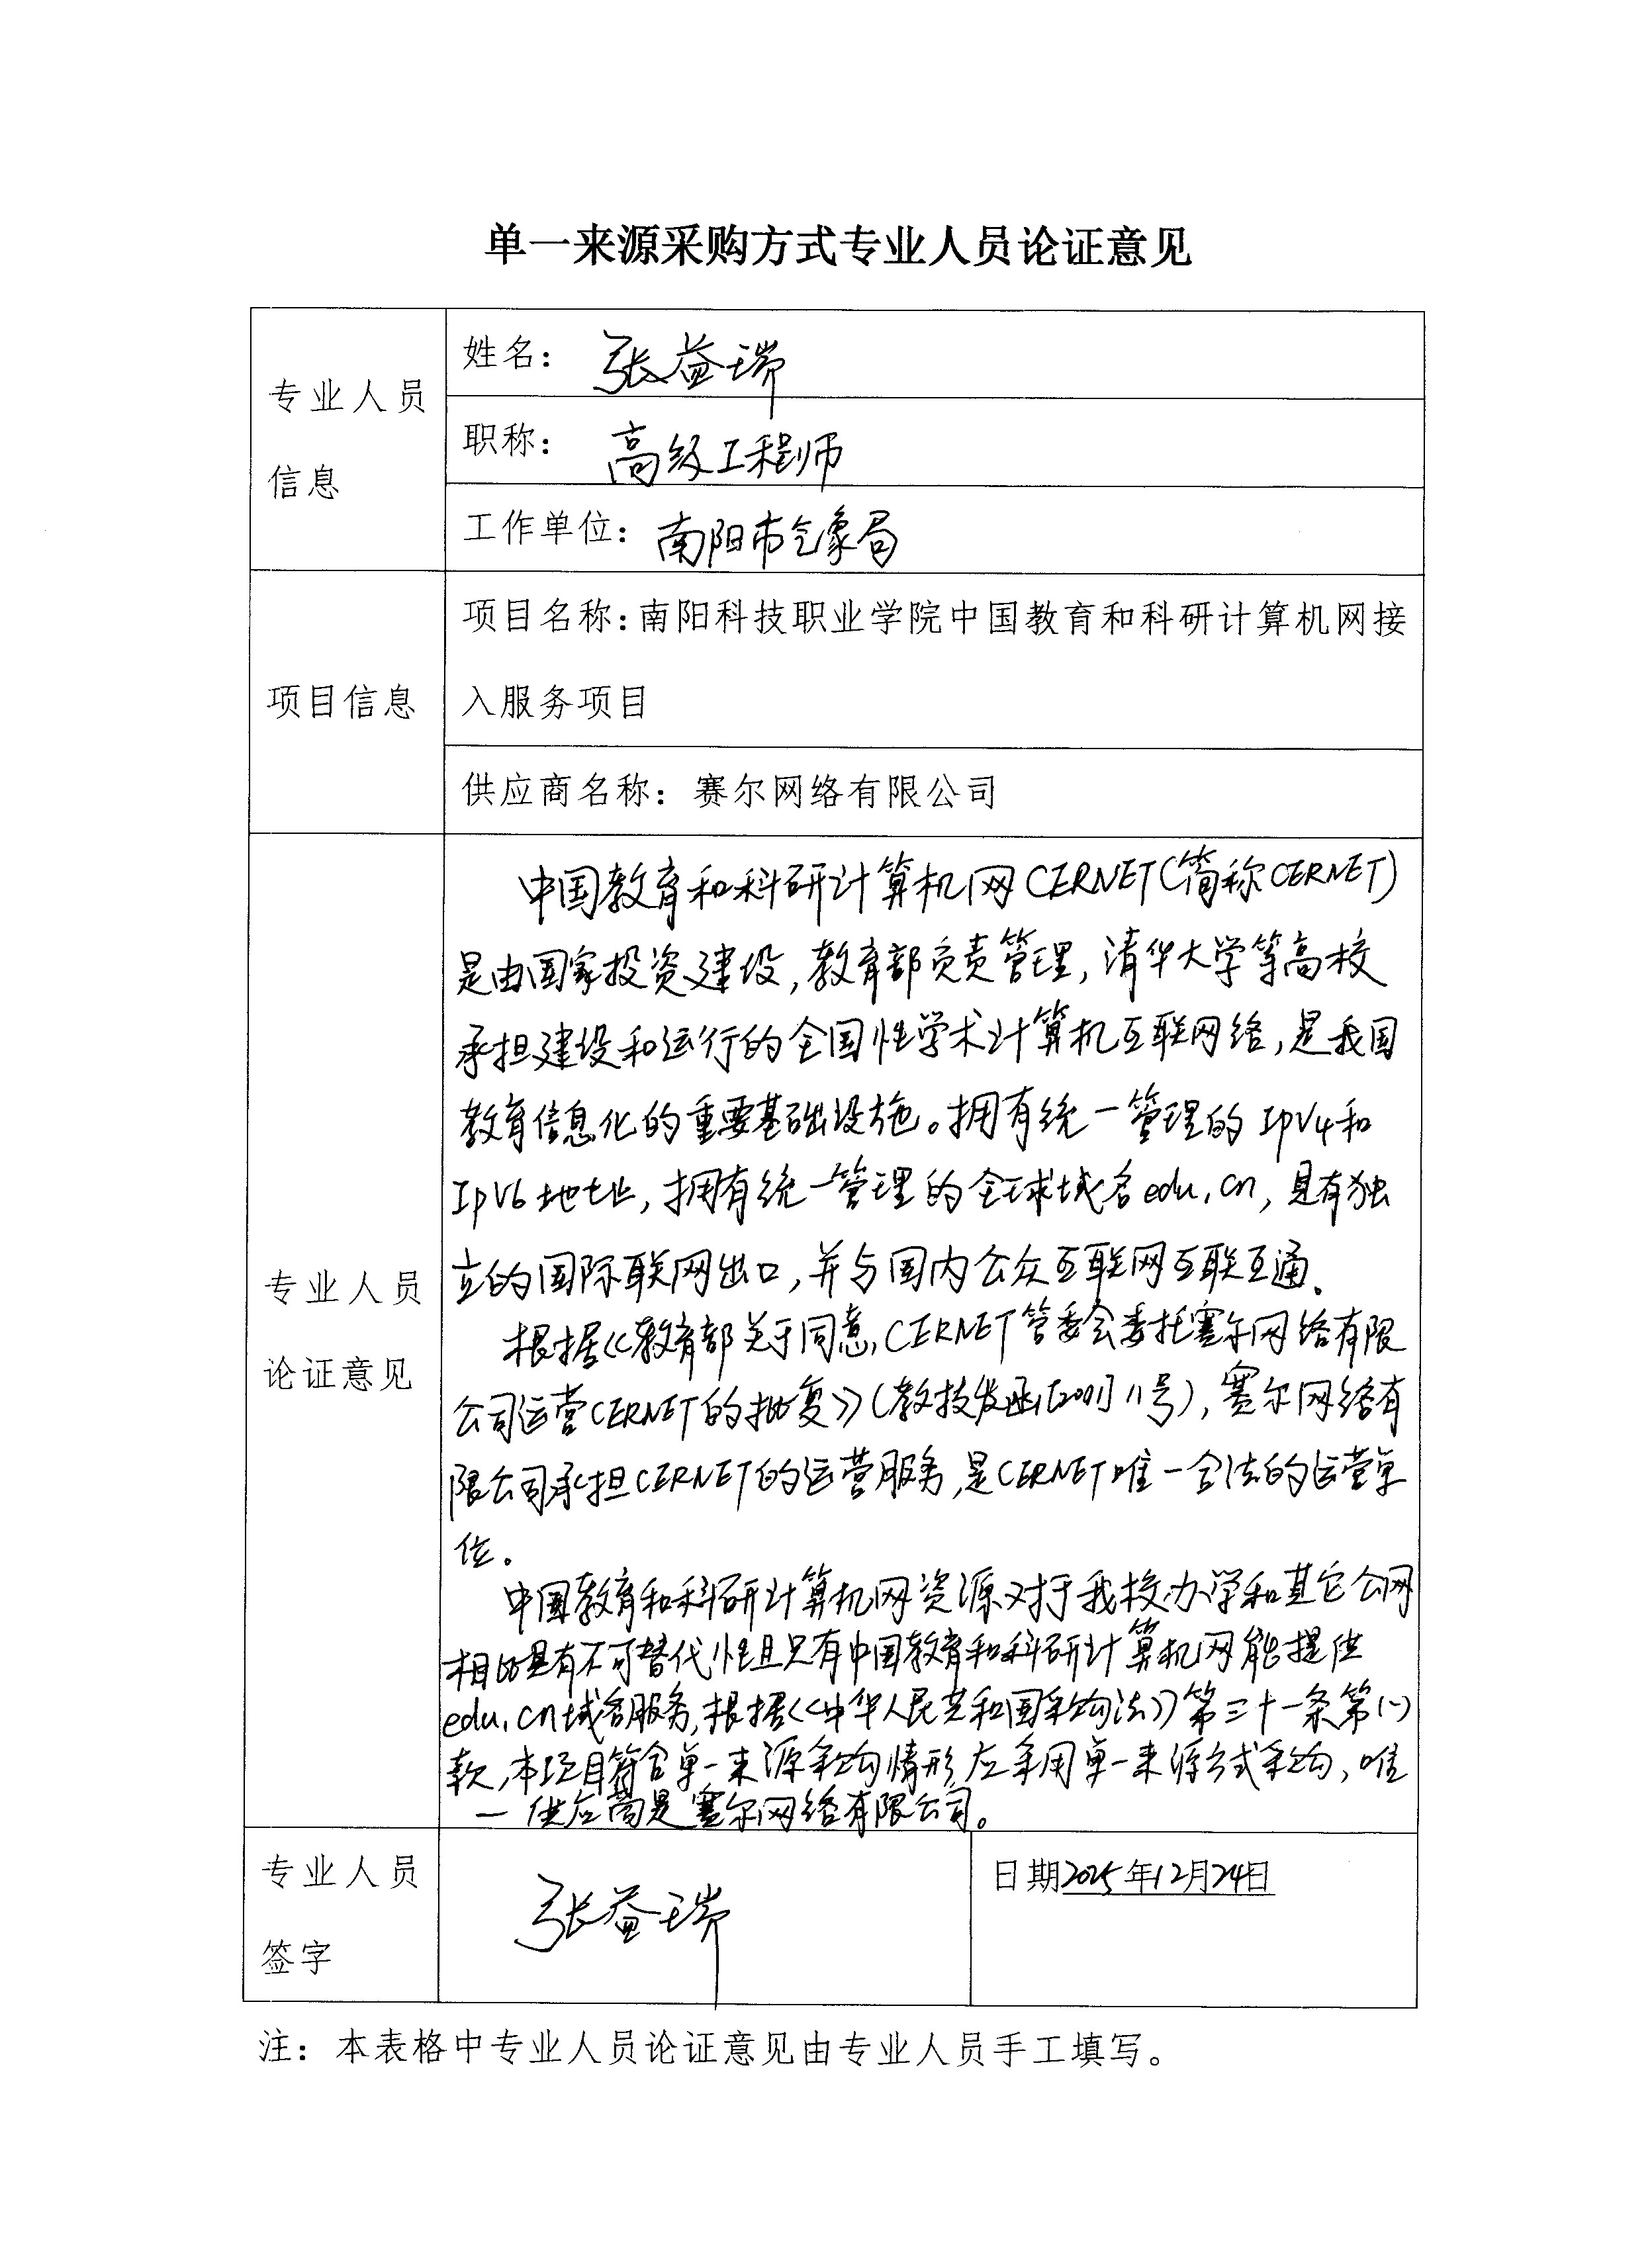 单一来源采购方式专业人员论证意见
专业人员
信息
姓名：张益瑞
职称：高级工程师
工作单位：南阳市气象局
项目信息
项目名称：南阳科技职业学院中国教育和科研计算机网接
入服务项目
供应商名称：赛尔网络有限公司
专业人员
论证意见
中国教育和科研计算机网CERNET(简称CERNET)
是由国家投资建设,教育部负责管理,清华大学等高校
承担建设和运行的全国性学术计算机互联网络,是我国
教育信息化的重要基础设施。拥有统一管理的IPV4和
IPV6地址,拥有统一管理的全球域名edu.cn,具有独
立的国际联网出口,并与国内公众互联网互联互通。
根据《教育部关于同意CERNET管委会委托赛尔网络有限
公司运营CERNET的批复》(教技发函[2001]11号),赛尔网络有
限公司承担CERNET的运营服务,是CERNET唯一合法的运营单
位。
中国教育和科研计算机网资源对于我校办学和其它公网
相比具有不可替代性且只有中国教育和科研计算机网能提供
edu.cn域名服务,根据《中华人民共和国采购法》第三十一条第(一)
款,本项目符合单一来源采购情形,应采用单一来源方式采购,唯
一供应商是赛尔网络有限公司。
专业人员
签字
张益瑞
日期2025年12月24日
注：本表格中专业人员论证意见由专业人员手工填写。